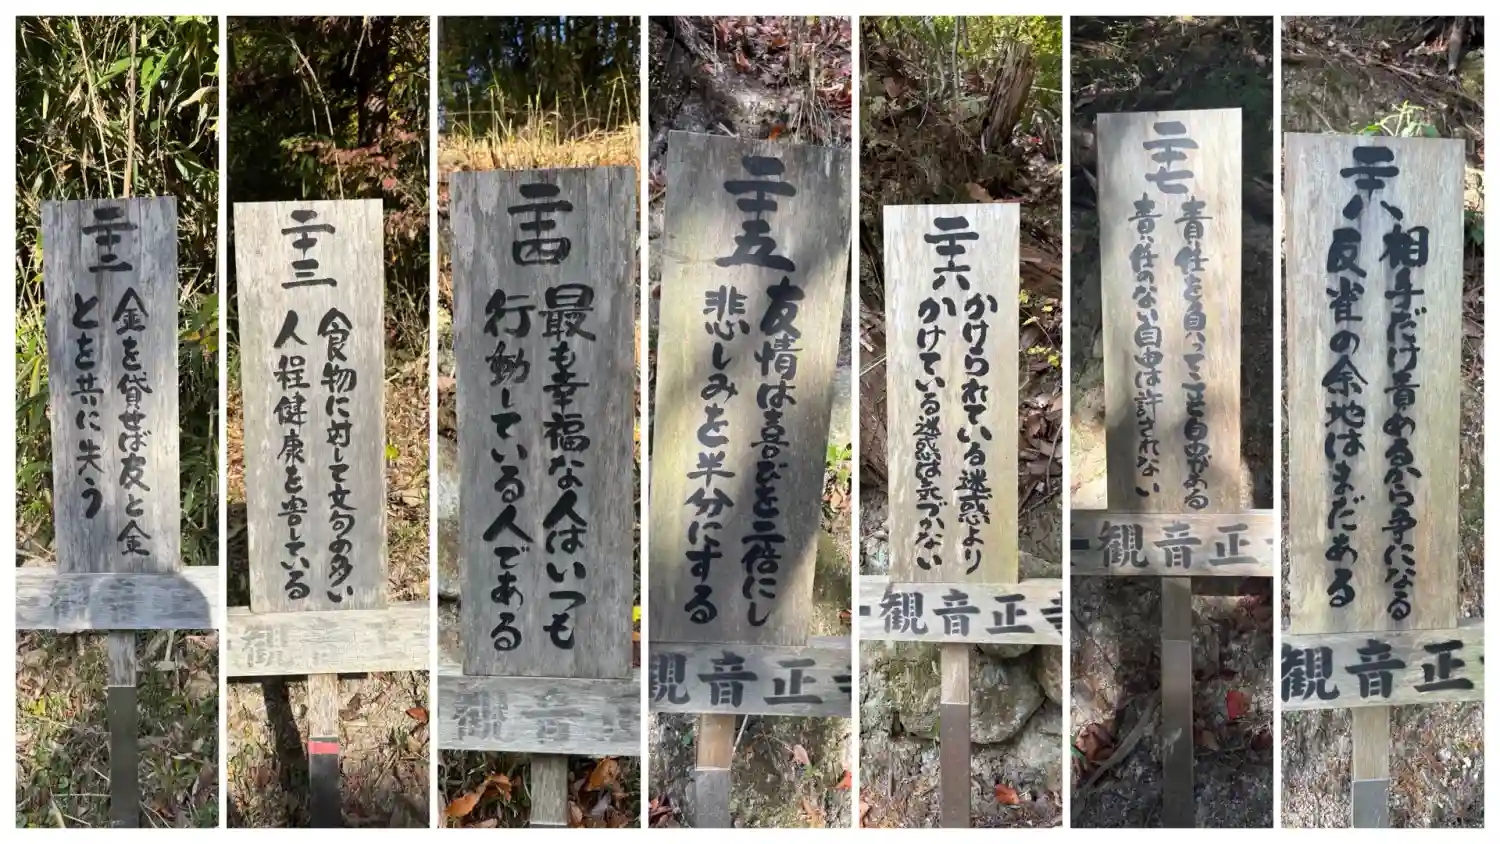 二十二
金を貸せば友と金
とを共に失う
観音
二十三
食物に対して文句の多い
人程健康を害している
観音
二十四
最も幸福な人はいつも
行動している人である
観音
二十五
友情は喜びを二倍にし
悲しみを半分にする
観音正寺
二十六
かけられている迷惑より
かけている迷惑は気づかない
観音正寺
二十七
責任を負ってこそ自由がある
責任のない自由は許されない
観音正
二十八
相手だけ責めるから争になる
反省の余地はまだある
観音正